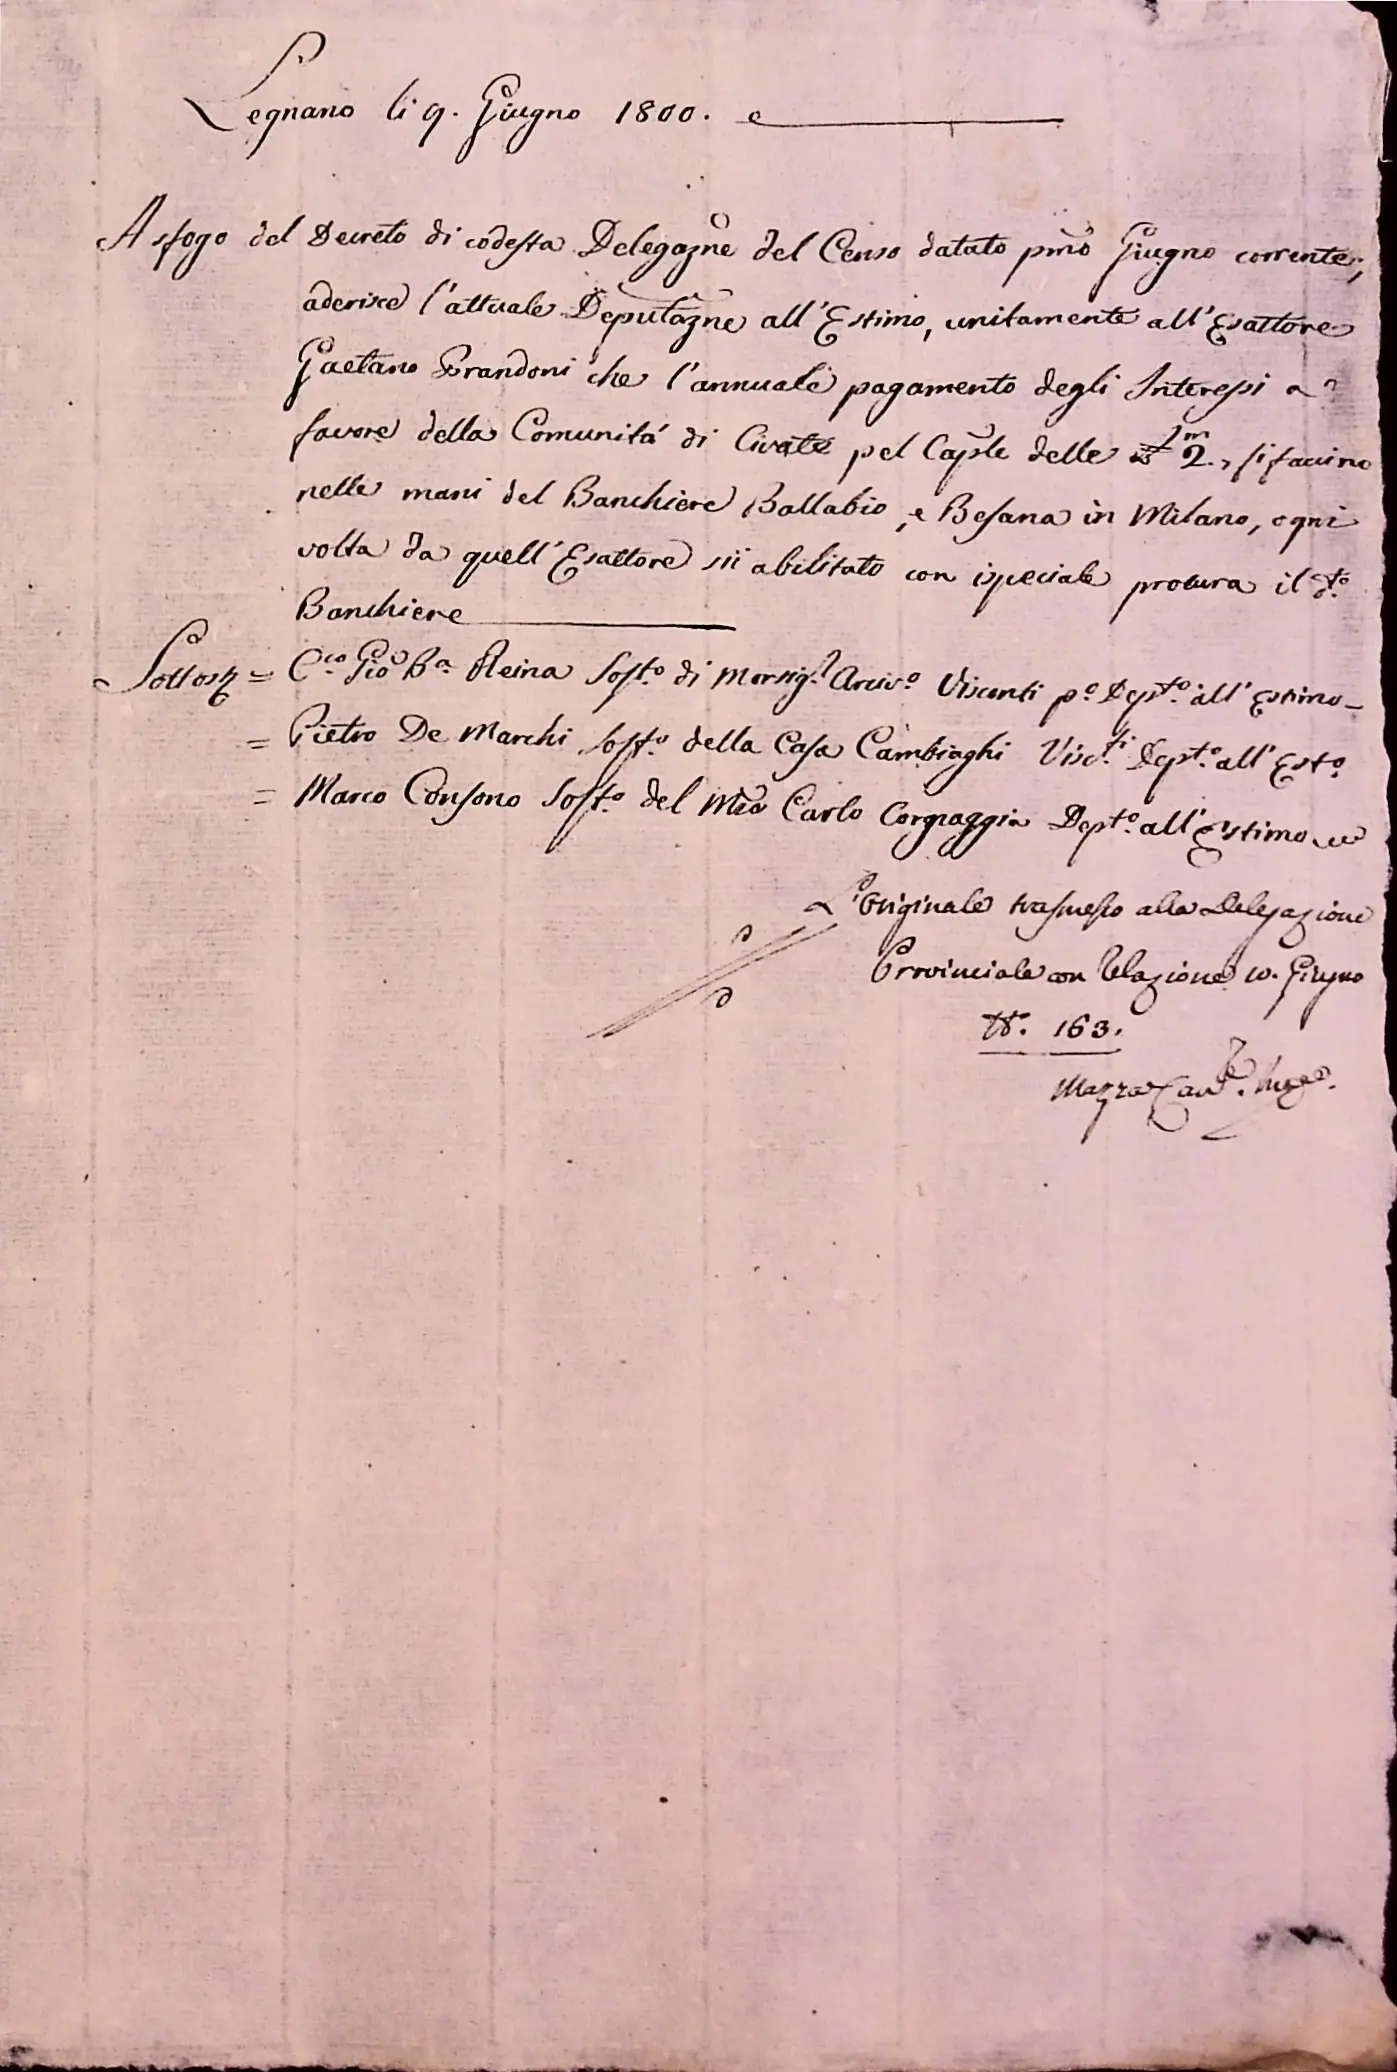 Legnano li 9. Giugno 1800.
A sfogo del Decreto di codesta Delegazne del Censo datato pmo Giugno corrente,
aderisce l'attuale Deputazne all'Estimo, unitamente all'Esattore
Gaetano Brandoni che l'annuale pagamento degli Interessi a
favore della Comunità di Civate pel Caple delle 2m., si faccino
nelle mani del Banchiere Ballabio, e Besana in Milano, ogni
volta da quell'Esattore sii abilitato con ispeciale procura il dto.
Banchiere
Sottos = Gio Ba. Reina Sosto. di Monsigr. Arcivo. Visconti po. Depto. all'Estimo
= Pietro De Marchi Sosto. della Casa Cambiaghi Viscti. Depto. all'Esto.
= Marco Consono Sosto. del Carlo Cornaggia Depto. all'Estimo
L'originale trasmesso alla Delegazione
Provinciale con Relazione 10. Giugno
N. 163.
Mazza